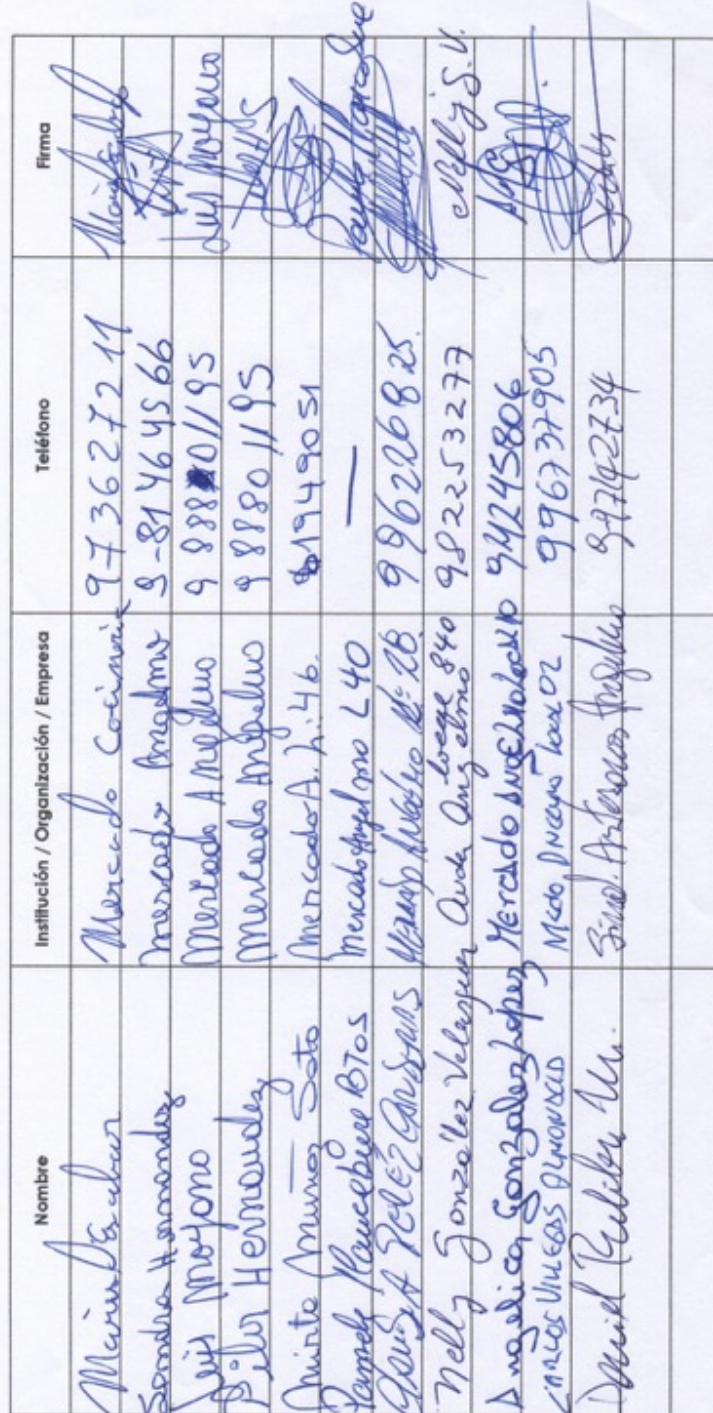 Nombre Institución / Organización / Empresa Teléfono Firma
Maria Escobar Mercado Cocineria 973627211
Sandra Hernandez mercado Angelmo 9-81464566
Luis Moyano Mercado Angelmo 9 88801195 Luis Moyano
Pilar Hernandez Mercado Angelmo 9 88801195
Mirta Muñoz Soto Mercado A. L: 46. 81949051
Pamela BTos Mercado Angelmo L40 —
PEREZ Nº 28. 996226825
Nelly González Velasquez Avda Angelmo 840 982253277 Nelly G. V.
Angelica Gonzalez Lopez Mercado ANGELMO 94245806
CARLOS VILLEGAS ALMONACID Mcdo ANGELMO Local 02 996737905
David Sind. Artesanos Angelmo